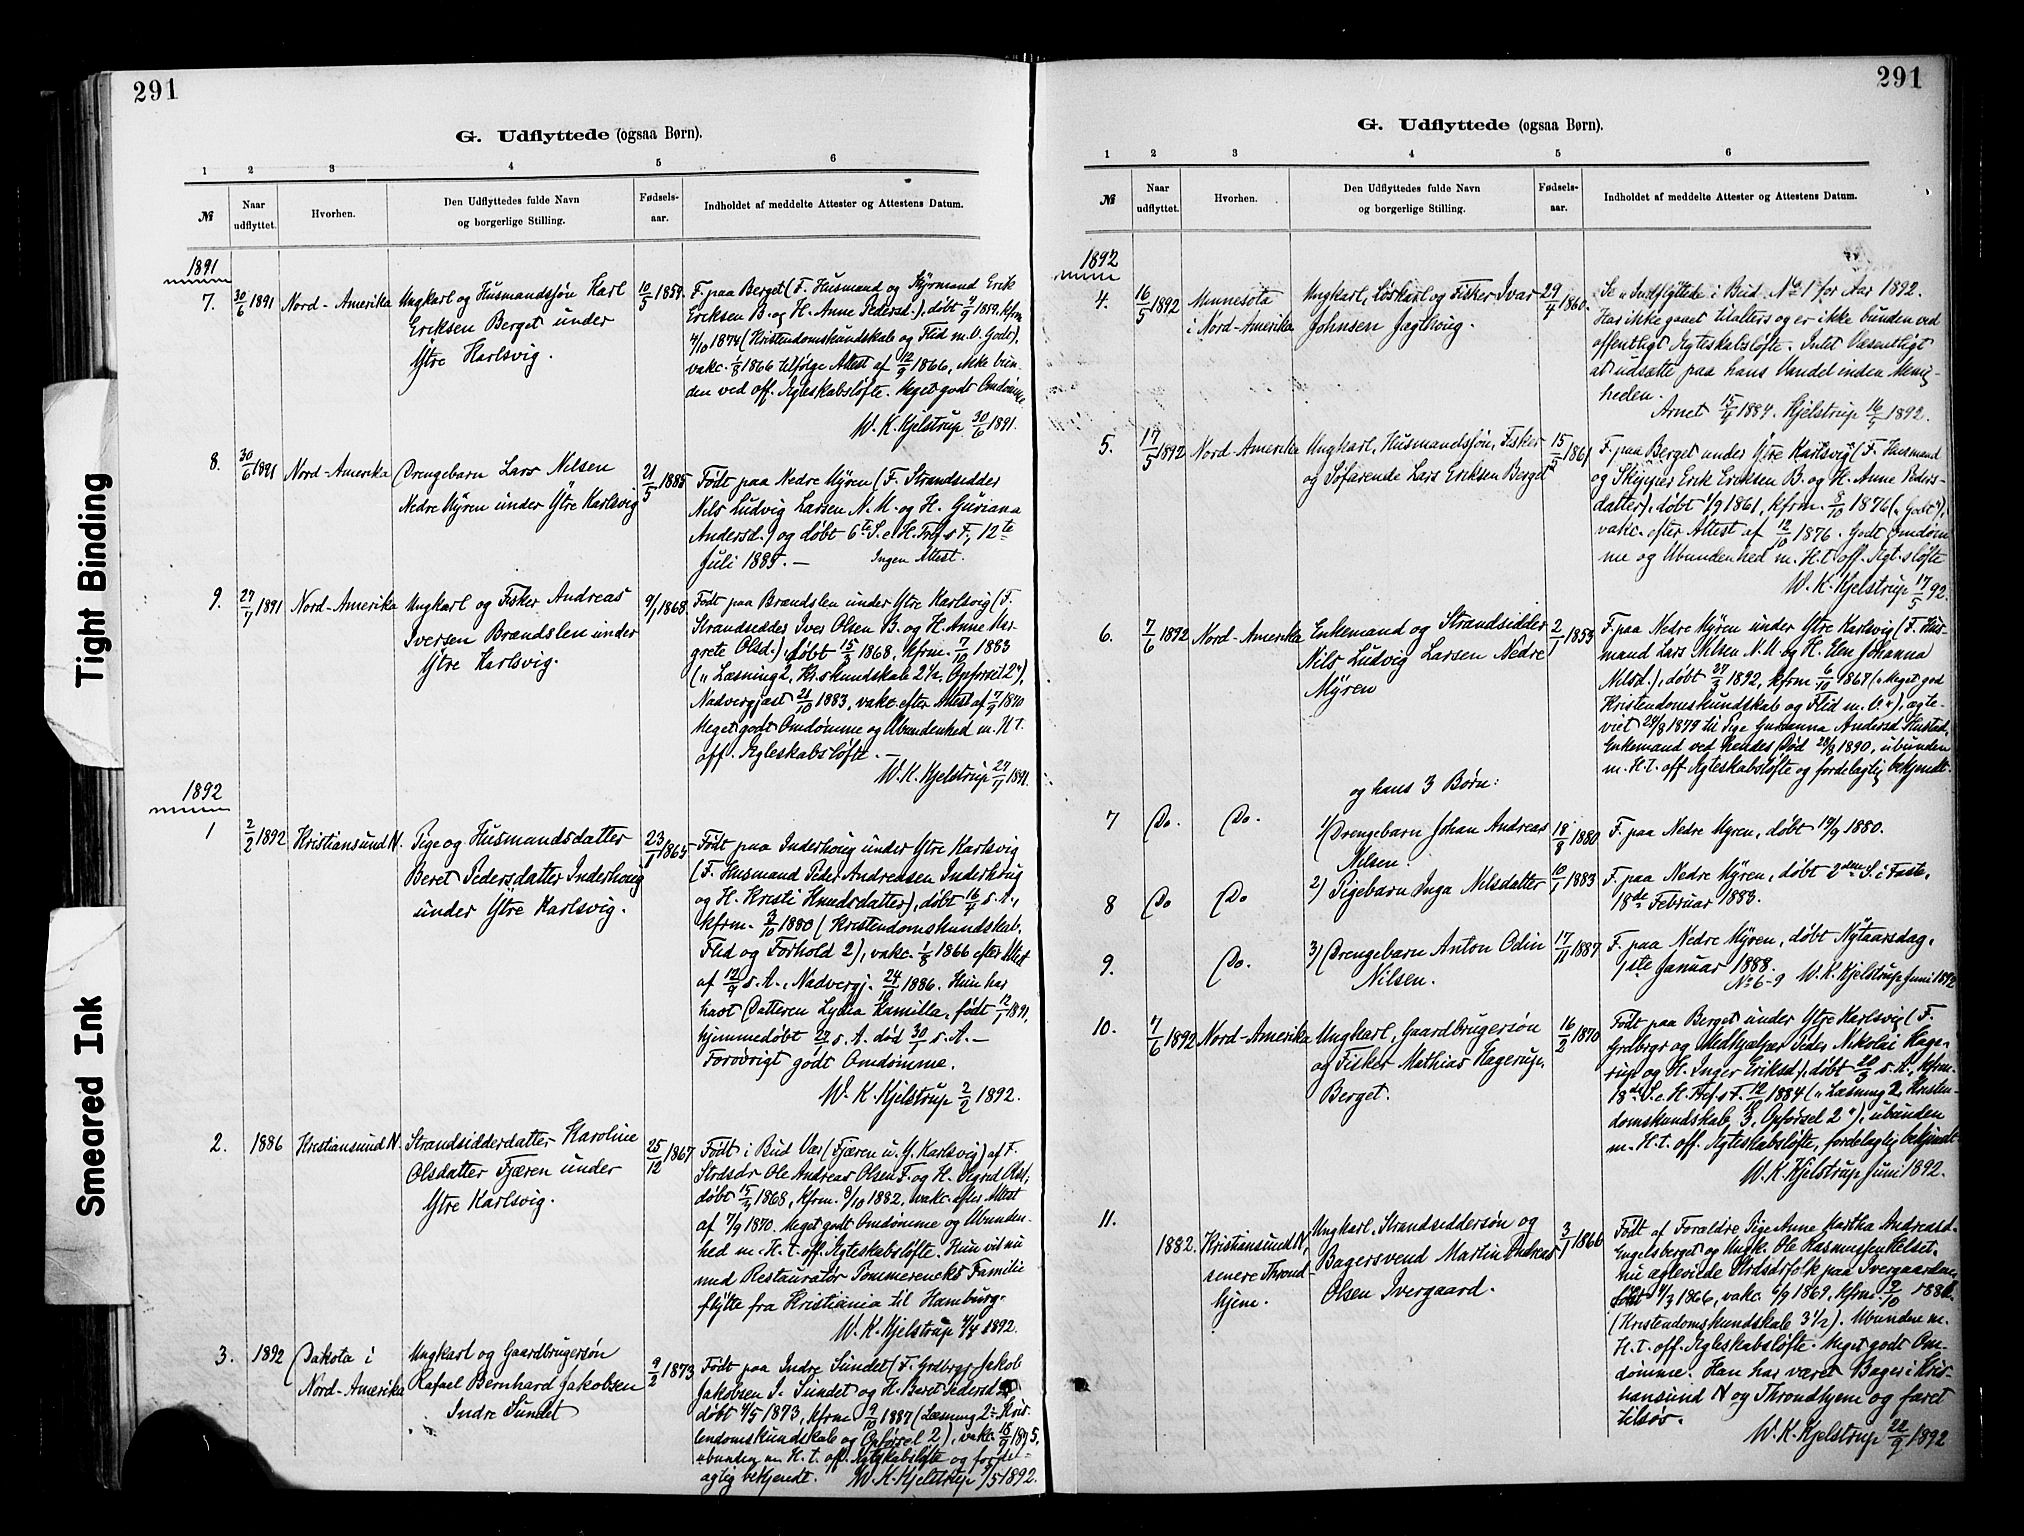 291
G. Udflyttede (ogsaa Børn).
1 2 3 4 5 6
№
Naar udflyttet.
Hvorhen.
Den Udflyttedes fulde Navn og borgerlige Stilling.
Fødselsaar.
Indholdet af meddelte Attester og Attestens Datum.
1891
7. 30/6 1891 Nord-Amerika
Ungkarl og Husmandssøn Karl
Eriksen Berget under
Ytre Karlsvig.
10/5 1859
F. paa Berget (F. Husmand og Styrmand Erik
Eriksen B. og H. Anne Pedersd.), døbt 4/9 1859, kfrm.
4/10 1874 (Kristendomskundskab og Flid m. G. Godt),
vakc. 1/8 1866 tilfølge Attest af 12/9 1866, ikke bun-
den ved off. Ægteskabsløfte. Meget godt Omdømme
W. K. Kjelstrup 30/6 1891.
8. 30/6 1891 Nord-Amerika
Drengebarn Lars Nilsen
Nedre Myren under Ytre Karlsvig
21/5 1885
Født paa Nedre Myren (F. Strandsidder
Nils Ludvig Larsen N. M. og H. Guriana
Andersd.) og døbt 6te S. e. H. Tref.s F., 12te
Juli 1885. — Ingen Attest.
9. 27/7 1891 Nord-Amerika
Ungkarl og Fisker Andreas
Iversen Brændslen under
Ytre Karlsvig.
9/1 1868
Født paa Brændslen under Ytre Karlsvig (F.
Strandsidder Iver Olsen B. og H. Anne Mar-
grete Olsd.), døbt 15/3 1868, kfrm. 7/10 1883
(„Læsning 2, Kr.skundskab 2½, Opførsel 2"),
Nadvergjæst 21/10 1883, vakc. efter Attest af 7/9 1870
Meget godt Omdømme og Ubundenhed m. H. t.
off. Ægteskabsløfte. —
W. K. Kjelstrup 27/7 1891.
1892
1 2/2 1892 Kristiansund N.
Pige og Husmandsdatter
Beret Pedersdatter Inderhoug
under Ytre Karlsvig.
23/1 1865
Født paa Inderhoug under Ytre Karlsvig
(F. Husmand Peder Andreasen Inderhoug
og H. Kristi Knudsdatter), døbt 16/4 s. A.,
kfrm. 3/10 1880 (Kristendomskundskab,
Flid og Forhold 2), vakc. 1/8 1866 efter Attest
af 12/9 s. A., Nadvergj. 24/10 1886. Hun har
havt Datteren Lydia Kamilla, født 12/1 1891,
hjemmedøbt 27/1 s. A. død 30/1 s. A. —
Forøvrigt godt Omdømme.
W. K. Kjelstrup 2/2 1892.
2. 1886 Kristiansund N.
Strandsidderdatter Karoline
Olsdatter Fjæren under
Ytre Karlsvig.
25/12 1867
Født i Bud Vær (Fjæren u. Y. Karlsvig) af F.
Strdsdr Ole Andreas Olsen F. og H. Sigrid Olsd.,
døbt 15/3 1868, kfrm. 8/10 1882, vakc. efter Attest
af 7/9 1870. Meget godt Omdømme og Ubunden-
hed m. H. t. off. Ægteskabsløfte. Hun vil nu
med Restauratør Pommerencks Familie
flytte fra Kristiania til Hamburg.
W. K. Kjelstrup 4/4 1892.
3. 1892 Dakota i
Nord-Amerika
Ungkarl og Gaardbrugersøn
Rafael Bernhard Jakobsen
Indre Sundet
9/2 1873
Født paa Indre Sundet (F. Grdbrgr. Jakob
Jakobsen I. Sundet og H. Beret Pedersd.
døbt 4/5 1873, kfrm. 9/10 1887 (Læsning 2, Kris-
tendomskundskab og Opførsel 2), vakc. 18/9 1875,
ubunden m. H. t. off. Ægteskabsløfte og forde-
agtig bekjendt. W. K. Kjelstrup /5 1892.
291
G. Udflyttede (ogsaa Børn).
1 2 3 4 5 6
№
Naar udflyttet.
Hvorhen.
Den Udflyttedes fulde Navn og borgerlige Stilling.
Fødselsaar.
Indholdet af meddelte Attester og Attestens Datum.
1892
4. 16/5 1892 Minnesota
i Nord-Amerika
Ungkarl, Løskarl og Fisker Ivar
Johnsen Jagthoug.
29/4 1860
Se „Indflyttede i Bud" No 1 for Aar 1892.
Har ikke gaaet til Alters og er ikke bunden ved
offentligt Ægteskabsløfte. Intet Væsentligt
at udsætte paa hans Vandel inden Menig-
heden.
Kjelstrup 16/5 1892.
5. 17/5 1892 Nord-Amerika
Ungkarl, Husmandssøn, Fisker
og Søfarende Lars Eriksen Berget
15/5 1861
F. paa Berget under Ytre Karlsvig (F. Husmand
og Skipper Erik Eriksen B. og H. Anne Peders-
datter), døbt 1/9 1861, kfrm. 8/10 1876 („Godt"),
vakc. efter Attest af 12/10 1876. Godt Omdøm-
me og Ubundenhed m. H. t. off. Ægt.sløfte
W. K. Kjelstrup 17/5 92.
6. 7/6 1892 Nord-Amerika
Enkemand og Strandsidder
Nils Ludvig Larsen Nedre
Myren
2/1 1853
F. paa Nedre Myren under Ytre Karlsvig (F. Hus-
mand Lars Nilsen N. M og H. Johanna
Nilsd.), døbt 27/3 1892, kfrm 6/10 1867 („Meget god
Kristendomskundskab og Flid m. V."), ægte-
viet 24/8 1879 til Pige Guriana Andersd. Hustad,
Enkemand ved hendes Død 28/8 1890, ubunden
m. H. t. off. Ægteskabsløfte og fordelagtig bekjendt.
og hans 3 Børn:
7 Do. Do.
1) Drengebarn Johan Andreas
Nilsen
18/8 1880
F. paa Nedre Myren, døbt 19/9 1880.
8 Do Do
2) Pigebarn Inga Nilsdatter
10/1 1883
F. paa Nedre Myren, døbt 2den S. i Faste,
18de Februar 1883.
9. Do.
3) Drengebarn Anton Odin
Nilsen.
17/11 1887
F. paa Nedre Myren, døbt Nytaarsdag,
1ste Januar 1888.
No 6-9 W. K. Kjelstrup Juni 1892
10. 7/6 1892 Nord-Amerika
Ungkarl, Gaardbrugersøn
og Fisker Mathias Hagerup
Berget.
16/2 1870
Født paa Berget under Ytre Karlsvig (F.
Grdbrgr og Medhjælper Peder Nikolai Hage-
rup og H. Inger Eriksd.), døbt 20/3 s. A., kfrm.
18de S. e. H. Tref.s F. 12/10 1884 („Læsning 2, Kristen-
domskundskab 3, Opførsel 2"), ubunden
m. H. t. off. Ægteskabsløfte, fordelagtig bekjendt
W. K. Kjelstrup Juni 1892.
11.
1882. Kristiansund N,
senere Thrond-
hjem.
Ungkarl, Strandsiddersøn og
Bagersvend Martin Andreas
Olsen Ivergaard.
3/1 1866
Født af Forældre Pige Anne Martha Andreasd.
Engelsberget og Ungk. Ole Rasmussen Kelset,
nu ægteviede Strdsdrfolk paa Ivergaarden,
døbt 11/3 1866, vakc. 6/9 1869, kfrm. 2/10 1881.
(Kristendomskundskab 3½). Ubunden m.
H. t. off. Ægteskabsløfte. Meget godt Om-
dømme. Han har været Bager i Kris-
tiansund N og Throndhjem og faret
tilsøs.
W. K. Kjelstrup 22/9 1892
Tight Binding
Smeared Ink